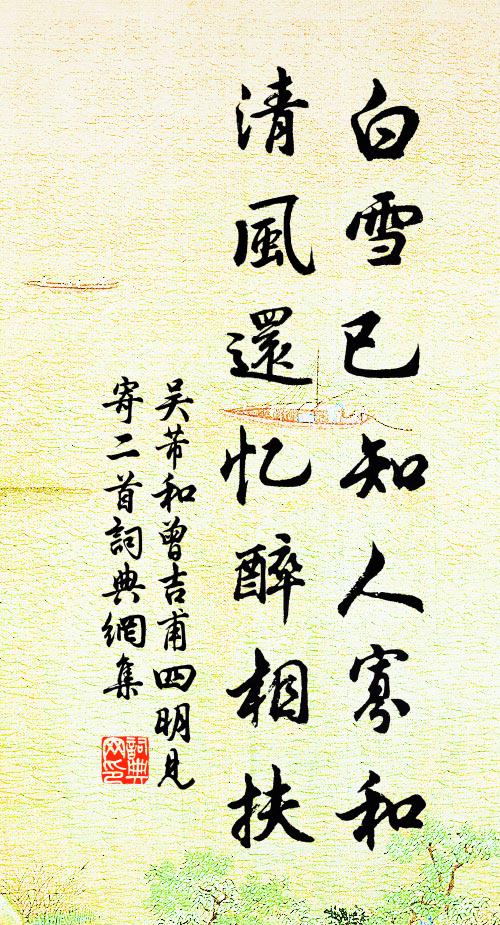 白雪已知人寡和
清風還忆醉相扶
吴芾和曾吉甫四明見
寄二首詞典網集
詞典
網印